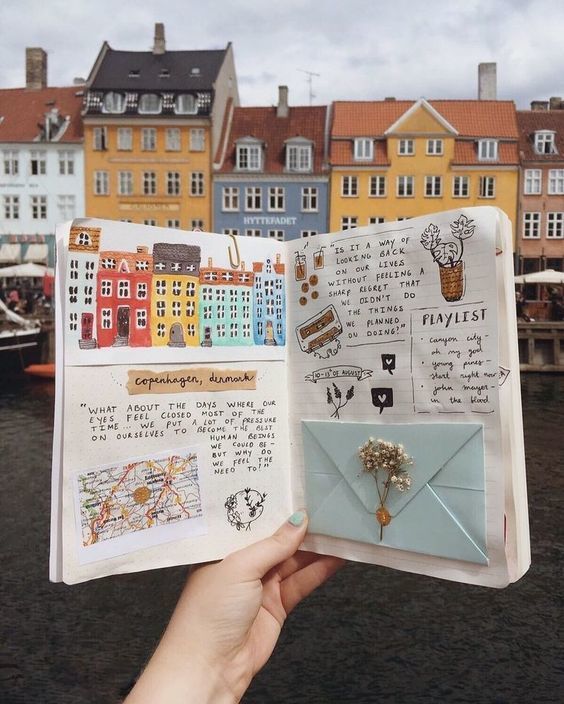 HYTTEFADET
copenhagen, denmark
"WHAT ABOUT THE DAYS WHERE OUR
EYES FEEL CLOSED MOST OF THE
TIME... WE PUT A LOT OF PRESSURE
ON OURSELVES TO BECOME THE BEST
HUMAN BEINGS
WE COULD BE-
BUT WHY DO
WE FEEL THE
NEED TO?"
"IS IT A WAY OF
LOOKING BACK
ON OUR LIVES
WITHOUT FEELING A
SHARP REGRET THAT
WE DIDN'T DO
THE THINGS
WE PLANNED
ON DOING?"
10-13th OF AUGUST
PLAYLIST
canyon city -
oh my god
young pines -
start right now
john mayer -
in the blood